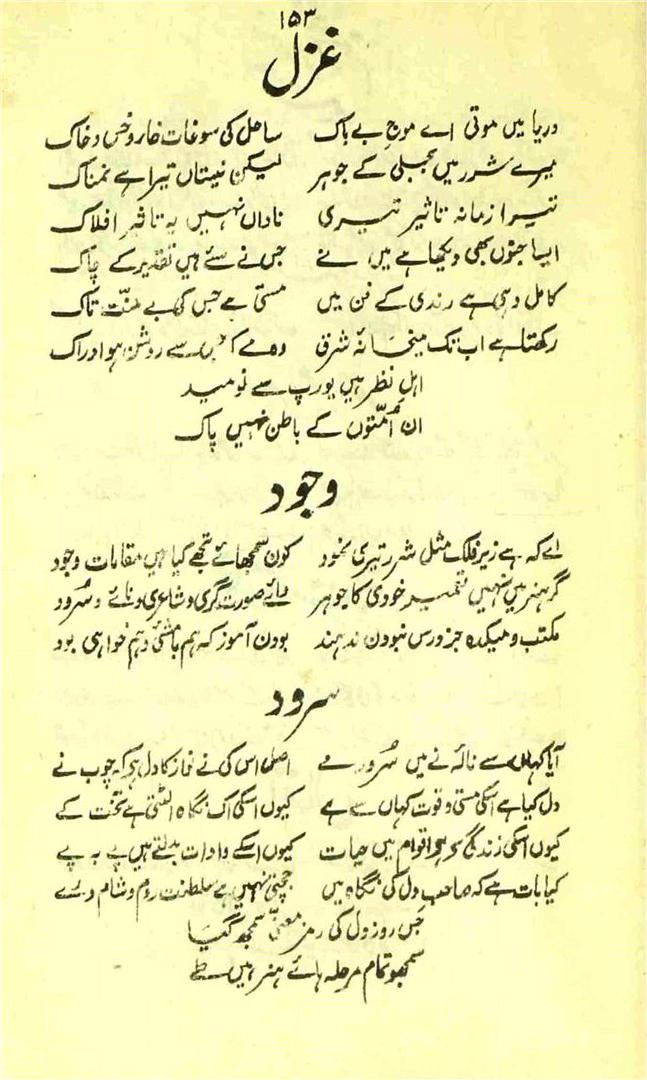 ۱۵۳
غزل
دریا میں موتی اے موجِ بے باک ساحل کی سوغات خار و خس و خاک
میرے شرر میں بجلی کے جوہر لیکن نیستاں تیرا ہے نمناک
تیرا زمانہ تاثیر تیری ناداں نہیں یہ تاثیرِ افلاک
ایسا جنوں بھی دیکھا ہے میں نے جس نے سئے ہیں تقدیر کے چاک
کامل وہی ہے رندی کے فن میں مستی ہے جس کی بے منّت تاک
رکھتا ہے اب تک میخانۂ شرق وہ مے کہ جس سے روشن ہو ادراک
اہلِ نظر ہیں یورپ سے نومید
ان اُمّتوں کے باطن نہیں پاک
وجود
اے کہ ہے زیرِ فلک مثلِ شرر تیری نمود کون سمجھائے تجھے کیا ہیں مقاماتِ وجود
گر ہنر میں نہیں تعمیرِ خودی کا جوہر وائے صورت گری و شاعری و نائے و سُرود
مکتب و میکدہ جز درس نبودن ندہند بودن آموز کہ ہم باشی و ہم خواہی بود
سرود
آیا کہاں سے نالۂ نے میں سُرورِ مے اصل اس کی نے نواز کا دل ہے کہ چوب نے
دل کیا ہے اسکی مستی و قوت کہاں سے ہے کیوں اسکی اک نگاہ الٹتی ہے تخت کے
کیوں اسکی زندگی سے ہے اقوام میں حیات کیوں اسکے واردات بدلتے ہیں پے بہ پے
کیا بات ہے کہ صاحبِ دل کی نگاہ میں جچتی نہیں ہے سلطنت روم و شام و رے
جس روز دل کی رمز مغنّی سمجھ گیا
سمجھو تمام مرحلہ ہائے ہنر ہیں طے